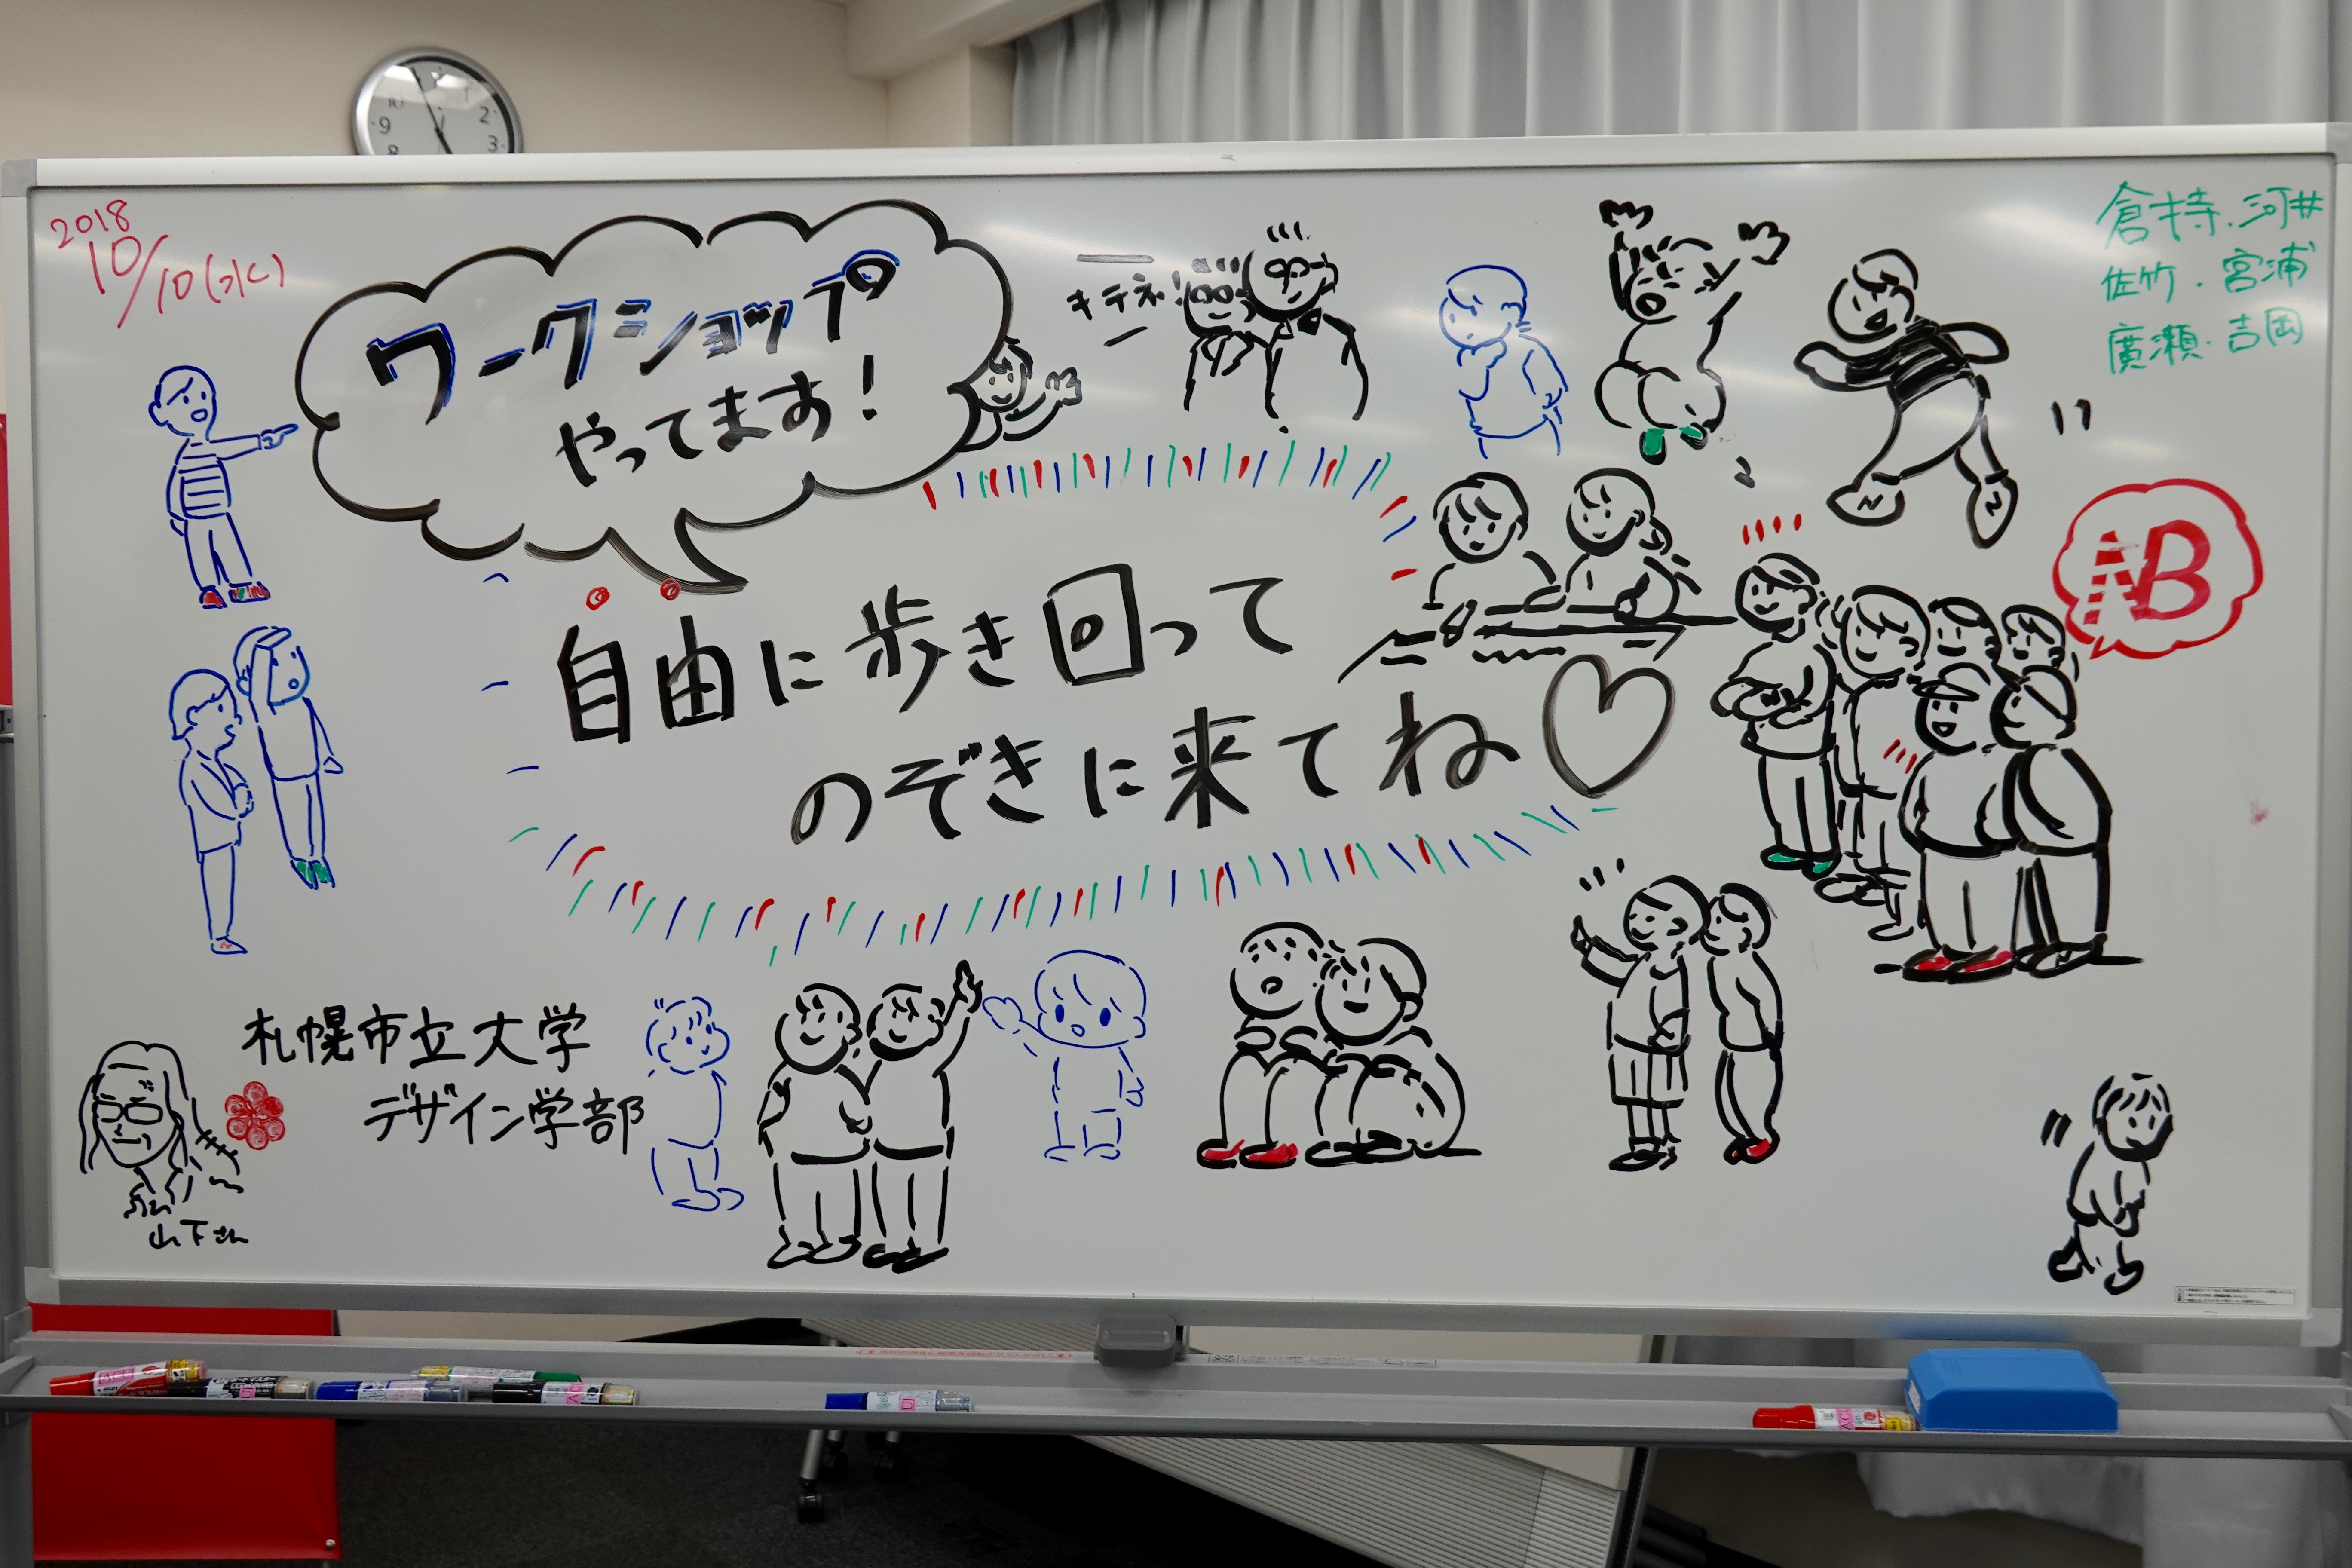 2018
10/10(水)
ワークショップ
やってます!
キテネ!
倉持・河井
佐竹・宮浦
廣瀬・吉岡
AB
自由に歩き回って
のぞきに来てね♡
札幌市立大学
デザイン学部
山下さん
10
2
9
3
8